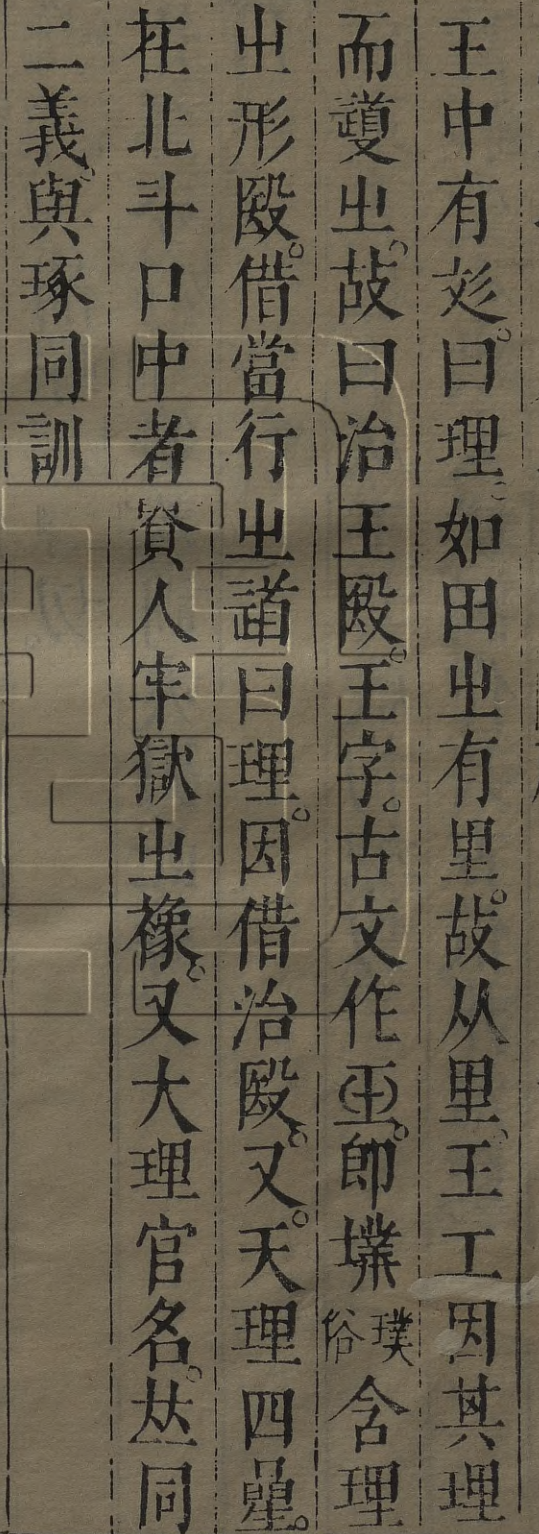 王中有彣曰理如田㞢有里故从里王工因其理
而𨗈㞢故曰治王殹王字古文作𤣪即墣俗璞含理
㞢形殹借當行㞢𧗟曰理因借治殹又天理四曐
在北斗口中者貟人牢獄㞢橡又大理官名㚘同
二義與琢同訓